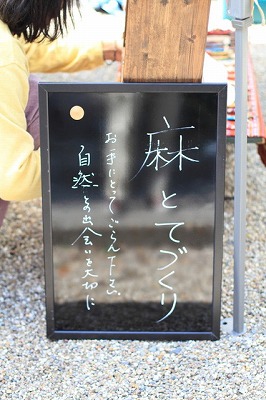 麻とてづくり
お手にとってごらん下さい
自然との出会いを大切に